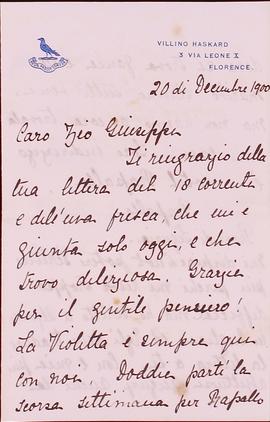 VILLINO HASKARD
3 VIA LEONE X
FLORENCE.
20 di Decembre 1900
Caro Zio Giuseppe
Ti ringrazio della
tua lettera del 18 corrente
e dell'uva fresca, che mi è
giunta solo oggi, e che
trovo deliziosa. Grazie
per il gentile pensiero!
La Violetta è sempre qui
con noi. Doddie partì la
scorsa settimana per Rapallo